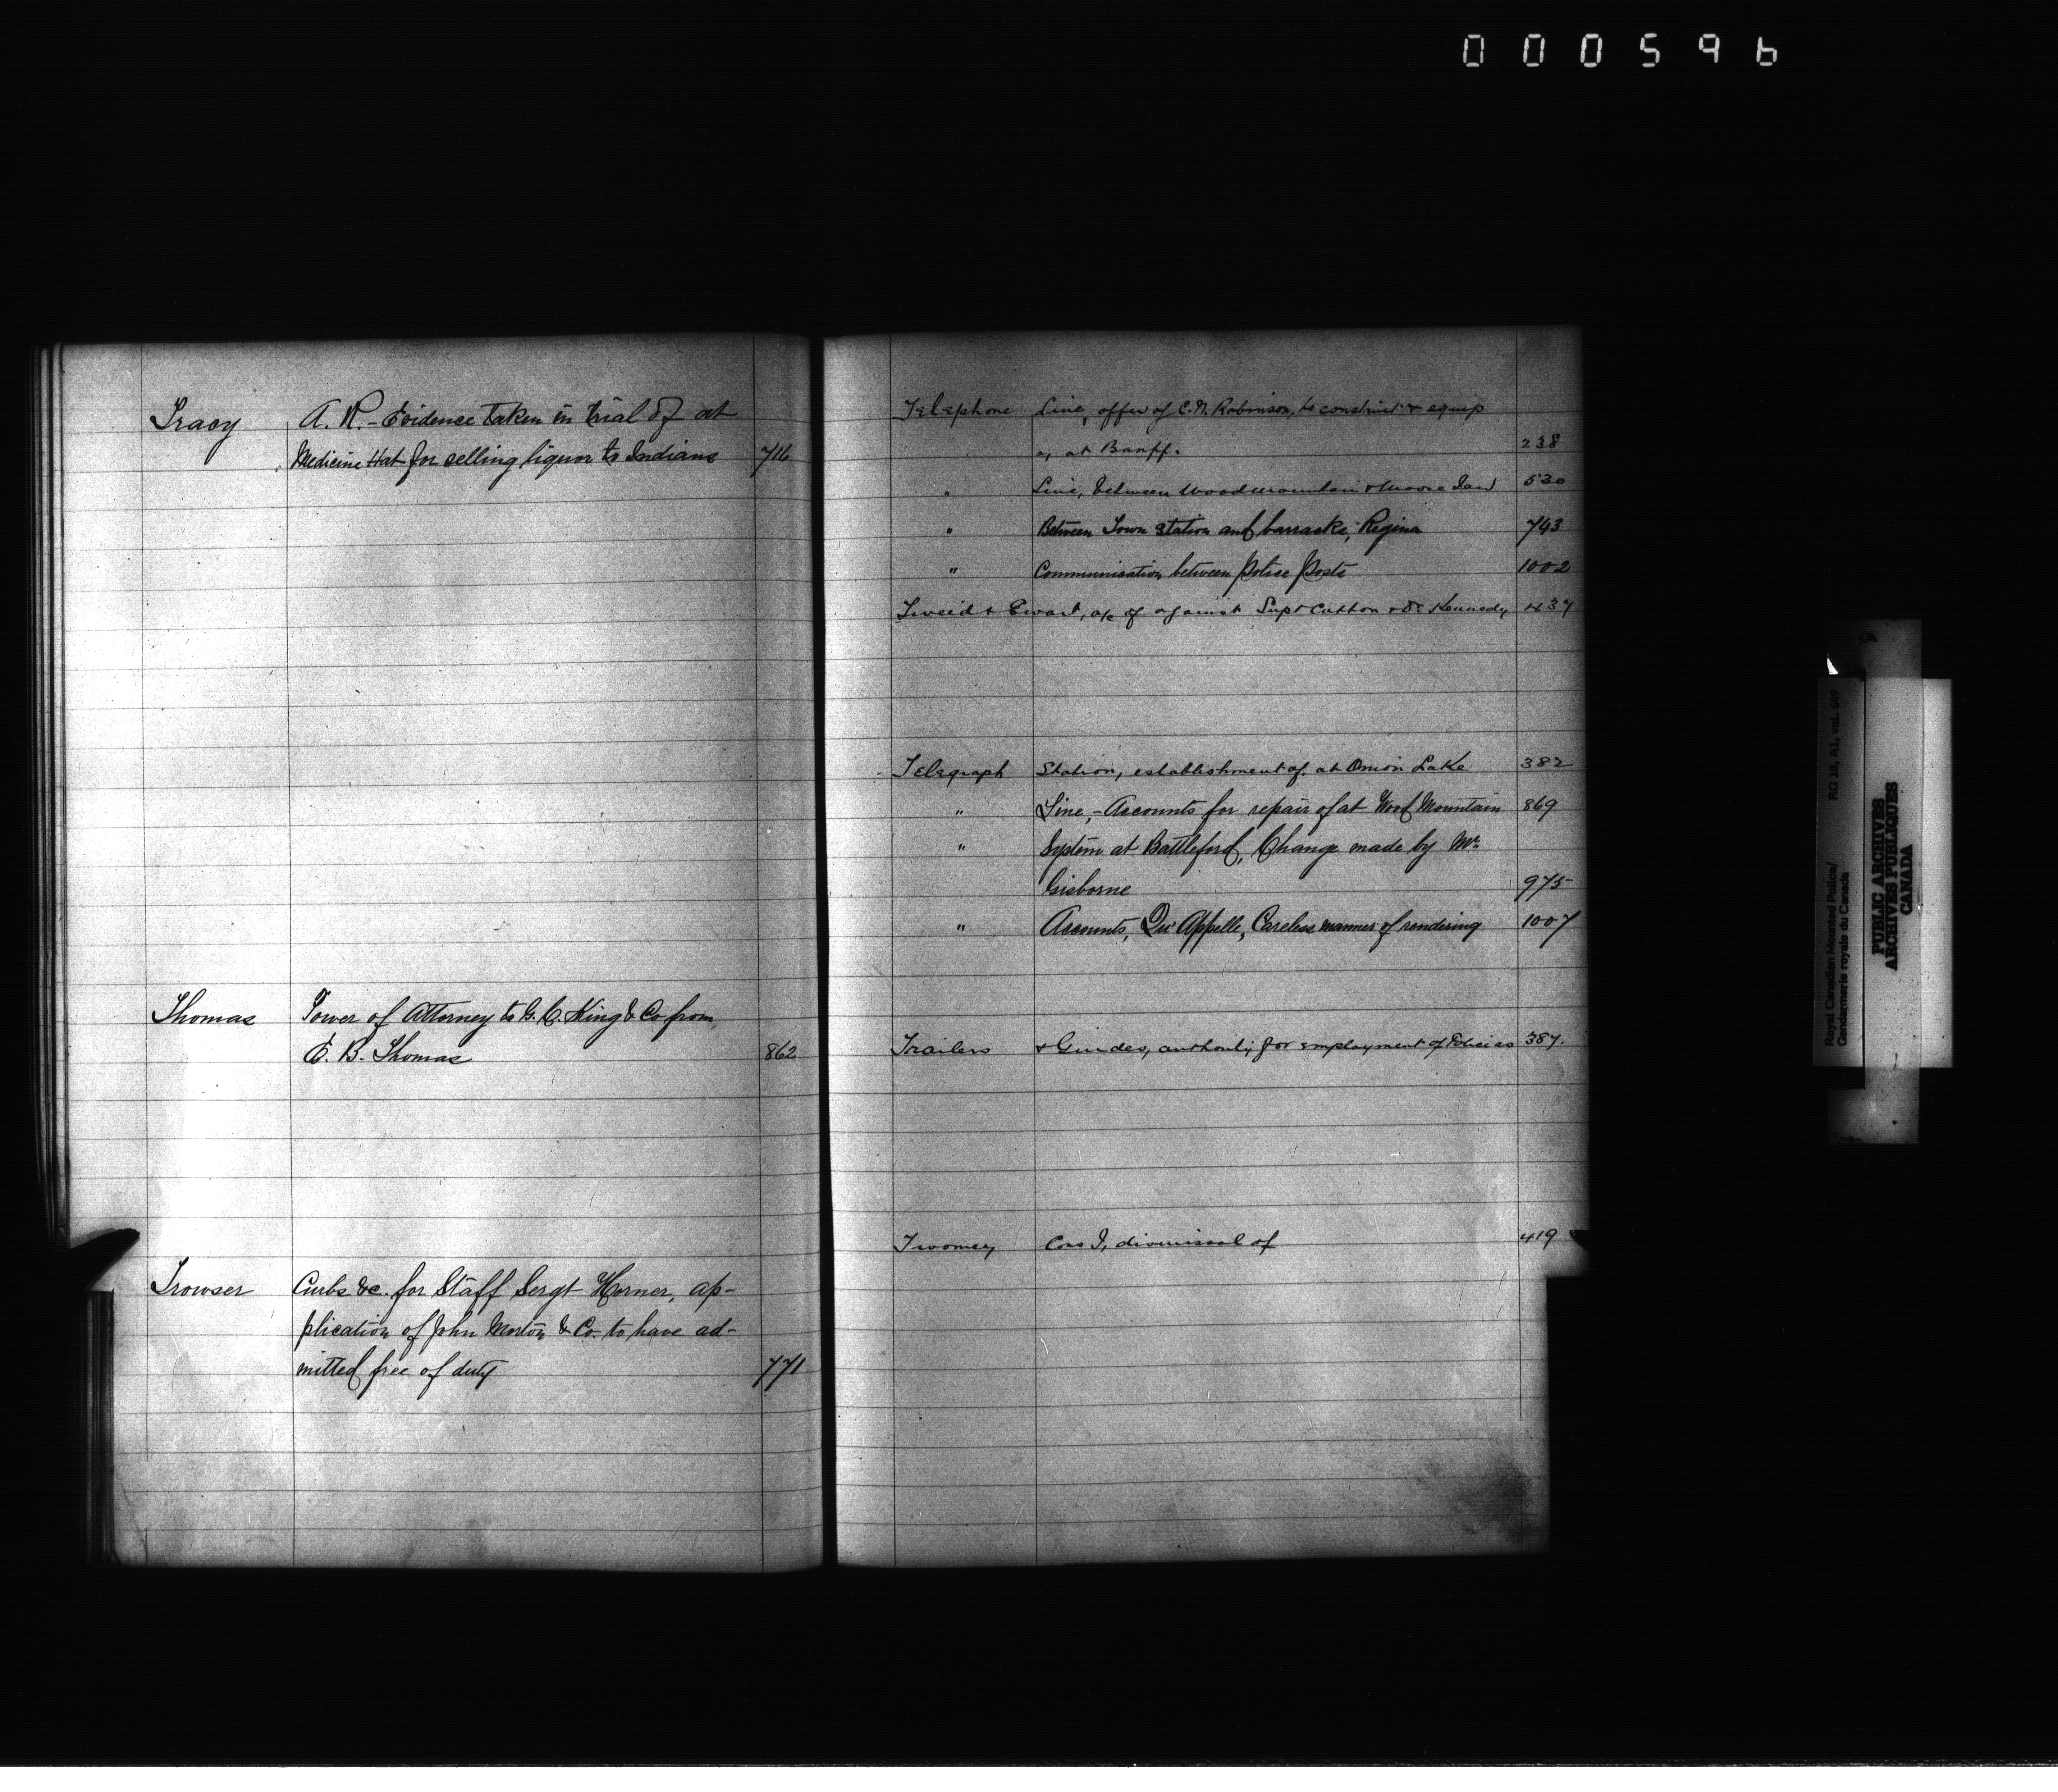 000596
Tracy A. R. - Evidence taken in trial of at
Medicine Hat for selling liquor to Indians 716
Thomas Power of Attorney to G. C. King & Co from
E. B. Thomas 862
Trowser Curbs &c. for Staff Sergt Horner, ap-
plication of John Morton & Co. to have ad-
mitted free of duty 771
Telephone Line, offer of C. N. Robinson, to construct & equip
a, at Banff. 238
" Line, between Woodmountain & Moose Jaw 530
" Between Town Station and barracks, Regina 743
" Communication between Police Posts 1002
Tweid & Ewart, a/c of against Supt Cotton & Dr Kennedy 437
Telegraph Station, establishment of, at Onion Lake 382
" Line, - Accounts for repair of at Wood Mountain 869
" System at Battleford, Change made by Mr.
Gisborne 975
" Accounts, Qu'Appelle, Careless manner of rendering 1007
Trailers & Guides, authority for employment of 387.
Twomey Cons J, dismissal of 419
Royal Canadian Mounted Police/ RG 18, A1, vol. 649
Gendarmerie royale du Canada
PUBLIC ARCHIVES
ARCHIVES PUBLIQUES
CANADA